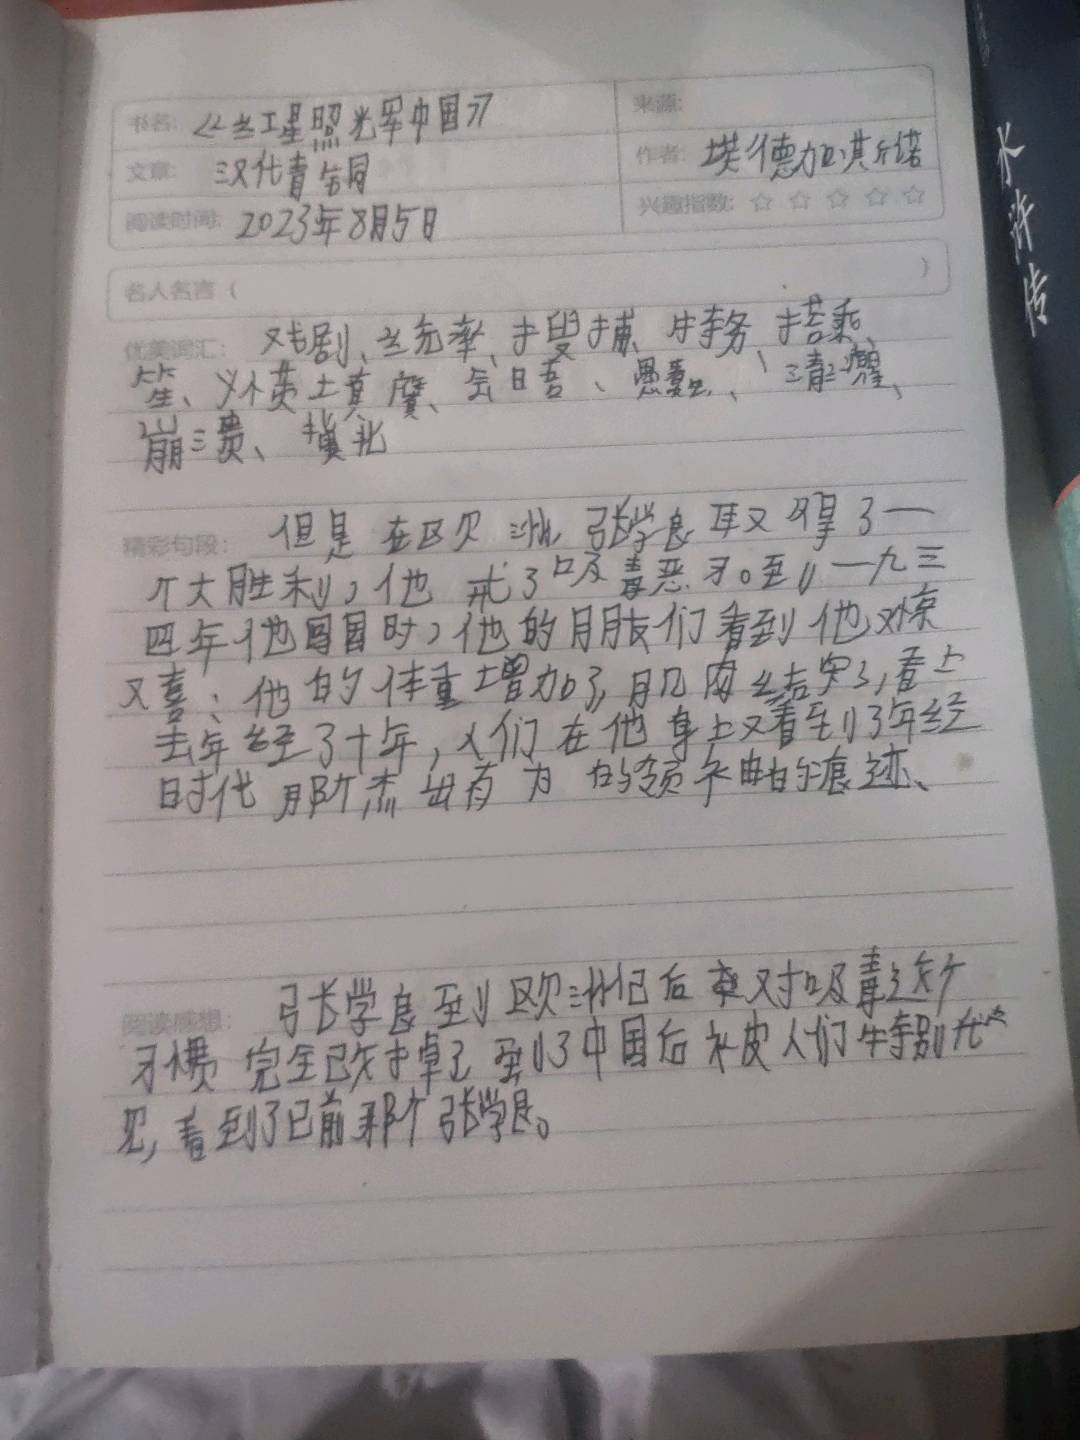 书名: 《红星照光军中国》
来源:
文章: 汉代青铜
作者: 埃德加·斯诺
阅读时间: 2023年8月5日
兴趣指数: ☆ ☆ ☆ ☆ ☆
名人名言 ( )
优美词汇: 戏剧、统率、捏捕、特务、搭乘、
笙、外蒙土真廣、会晤、愚蠢、清醒、
崩溃、摸北
精彩句段: 但是在区欠洲,张学良取得了一
个大胜利,他戒了吸毒恶习。到一九三
四年他回国时,他的朋友们看到他又惊
又喜:他的体重增加了,肌肉结实了,看上
去年轻了十年,人们在他身上又看到了年轻
时代那个杰出有为的领袖的痕迹、
阅读感想: 张学良到欧洲记后就对吸毒这个
习惯完全改掉了到了中国后被人们特别
见,看到了已前那个张学良。
水浒传